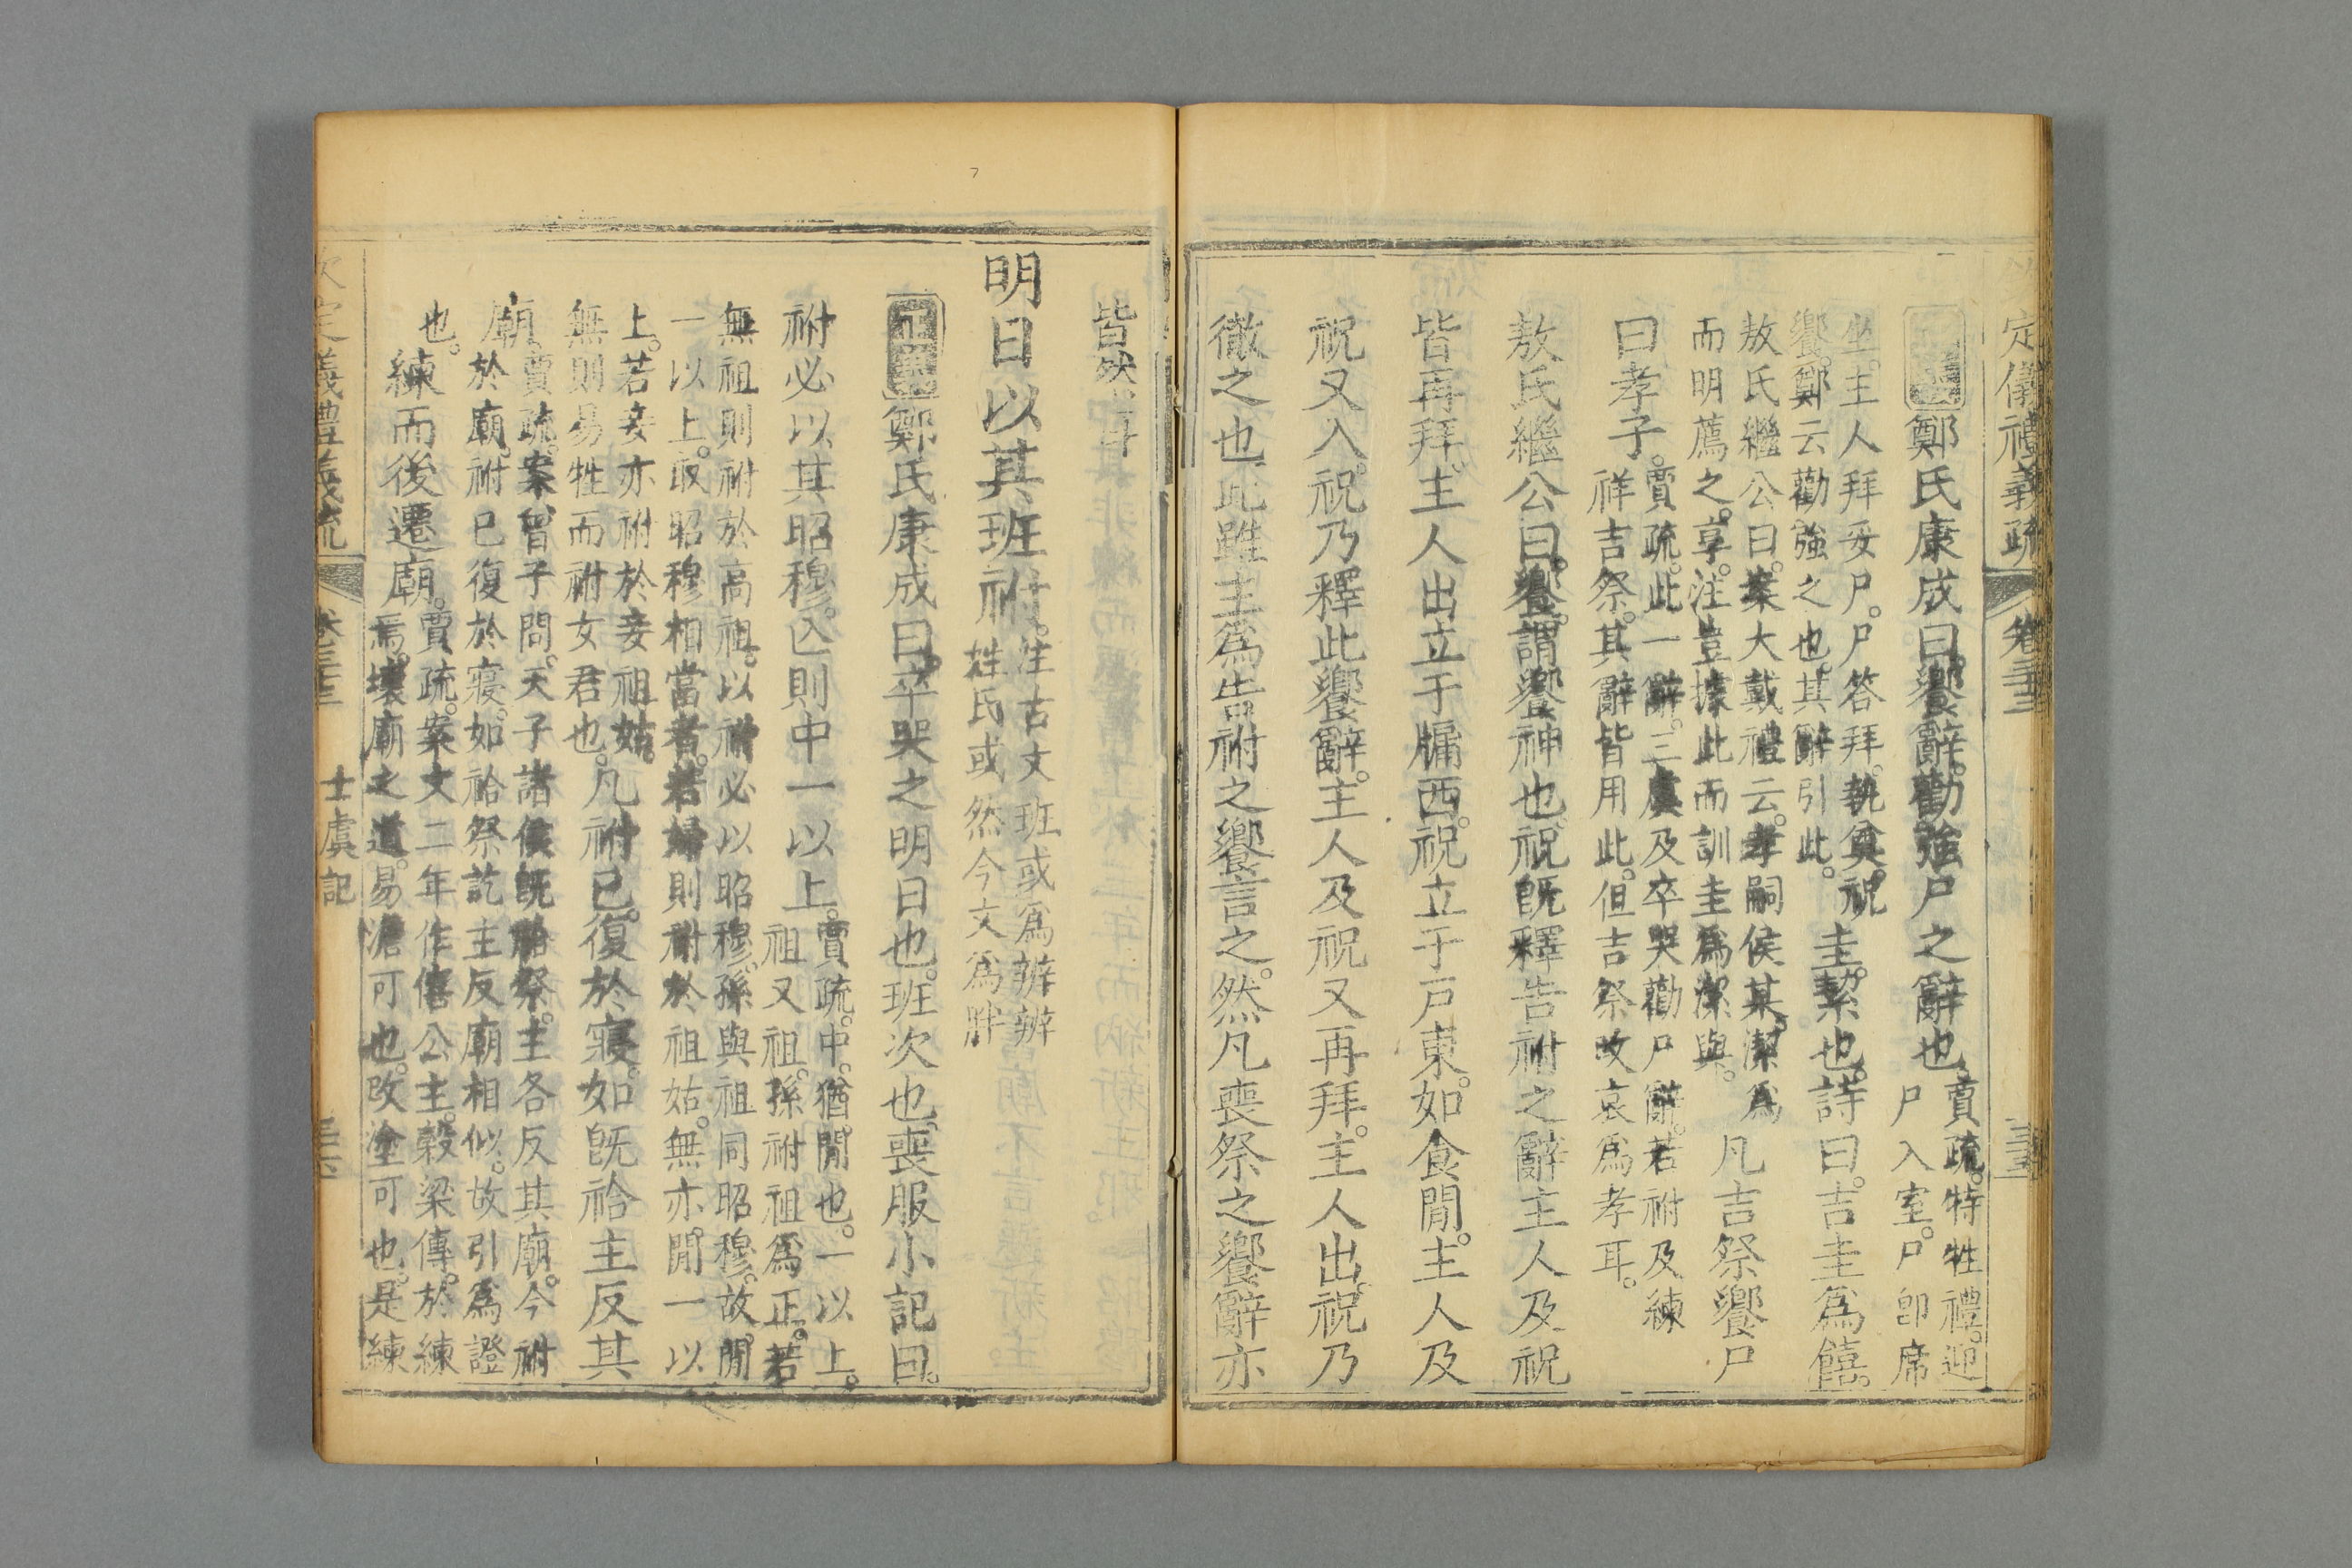 定儀禮義疏 卷三十三
鄭氏康成曰饗辭勸強尸之辭也
賈疏特牲禮迎
尸入室尸卽席
坐主人拜妥尸尸答拜執奠祝
饗鄭云勸強之也其辭引此
圭絜也詩曰吉圭爲饎
敖氏繼公曰案大戴禮云孝嗣侯某潔爲
而明薦之享注豈據此而訓圭爲潔與
凡吉祭饗尸
曰孝子
賈疏此一辭三虞及卒哭勸尸辭若祔及練
祥吉祭其辭皆用此但吉祭改哀爲孝耳
敖氏繼公曰饗謂饗神也祝旣釋告祔之辭主人及祝
皆再拜主人出立于牖西祝立于戶東如食閒主人及
祝又入祝乃釋此饗辭主人及祝又再拜主人出祝乃
徹之也此雖主爲告祔之饗言之然凡喪祭之饗辭亦
皆然耳
明日以其班祔
注古文班或爲辨辨
姓氏或然今文爲胖
正義 鄭氏康成曰卒哭之明日也班次也喪服小記曰
祔必以其昭穆亾則中一以上
賈疏中猶閒也一以上
祖又祖孫祔祖爲正若
無祖則祔於高祖以祔必以昭穆孫與祖同昭穆故閒
一以上取昭穆相當者若婦則祔於祖姑無亦閒一以
上若妾亦祔於妾祖姑
無則易牲而祔女君也
凡祔已復於寢如旣祫主反其
廟
賈疏案曾子問天子諸侯旣祫祭主各反其廟今祔
於廟祔已復於寢如祫祭訖主反廟相似故引爲證
也
練而後遷廟
賈疏案文二年作僖公主榖梁傳於練
焉壞廟之道易檐可也改塗可也是練
定儀禮義疏 卷三十三 士虞記